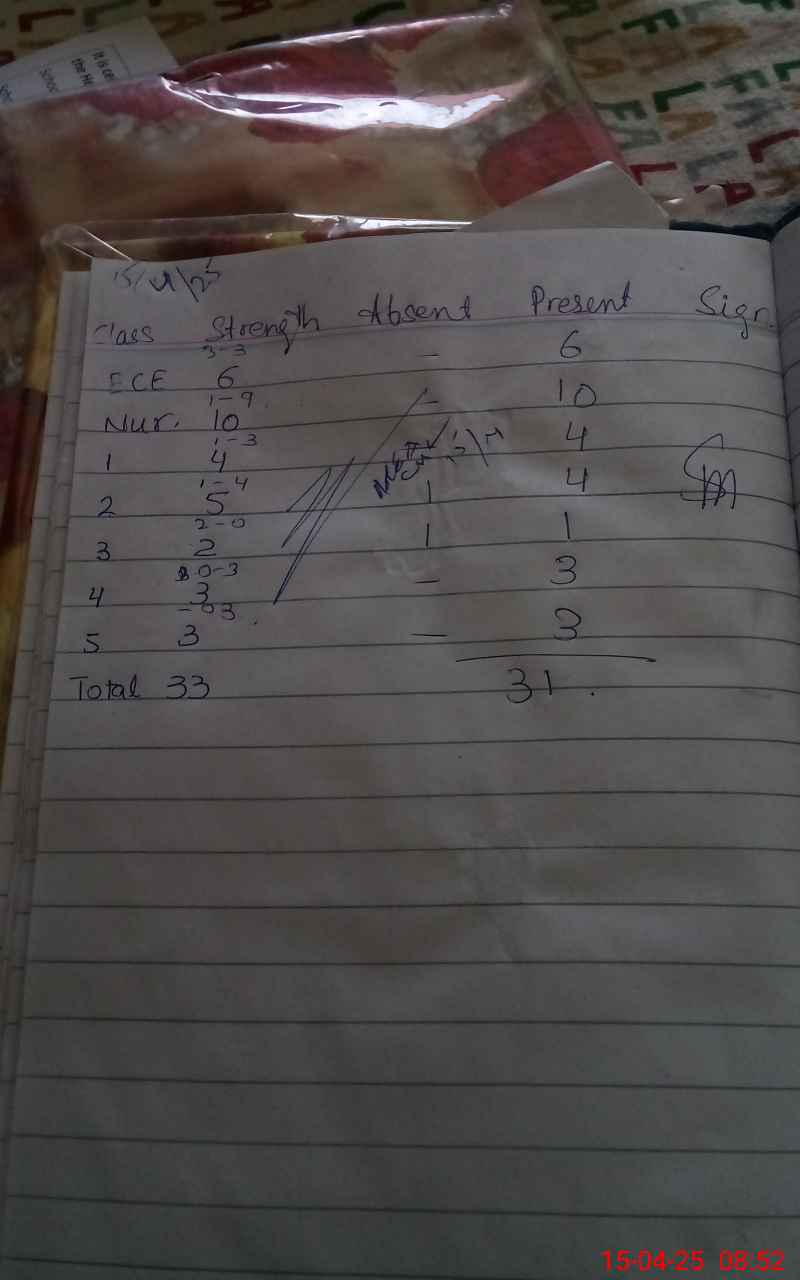 It is cer
the He
School
Scho
FALALA
15/4/25
Class Strength Absent Present Sign.
3-3
ECE 6 - 6
1-9
Nur. 10 - 10
1-3
1 4 4
1-4
2 5 1 4
2-0
3 2 1 1
0-3
4 3 - 3
-03
5 3 - 3
Total 33 31.
15-04-25 08:52